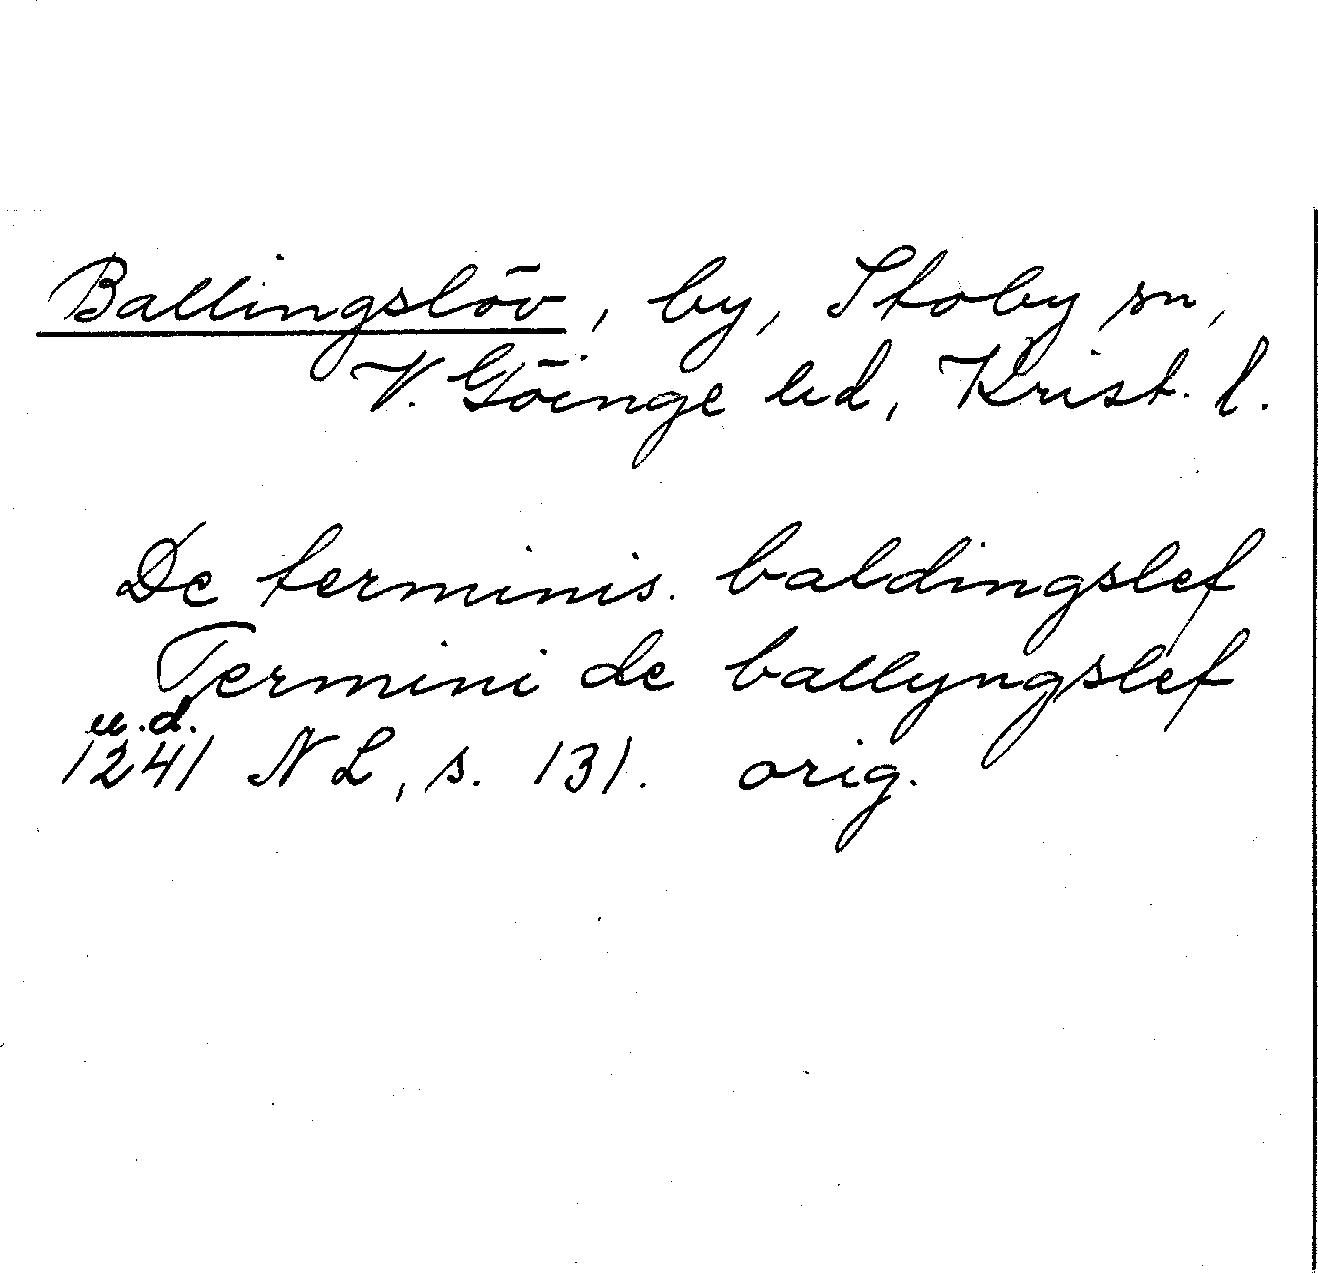 Ballingslöv, by, Stoby sn,
V. Göinge hd, Krist. l.
De terminis. baldingslef
Termini de ballyngslef
u.d.
1241 NL, s. 131. orig.